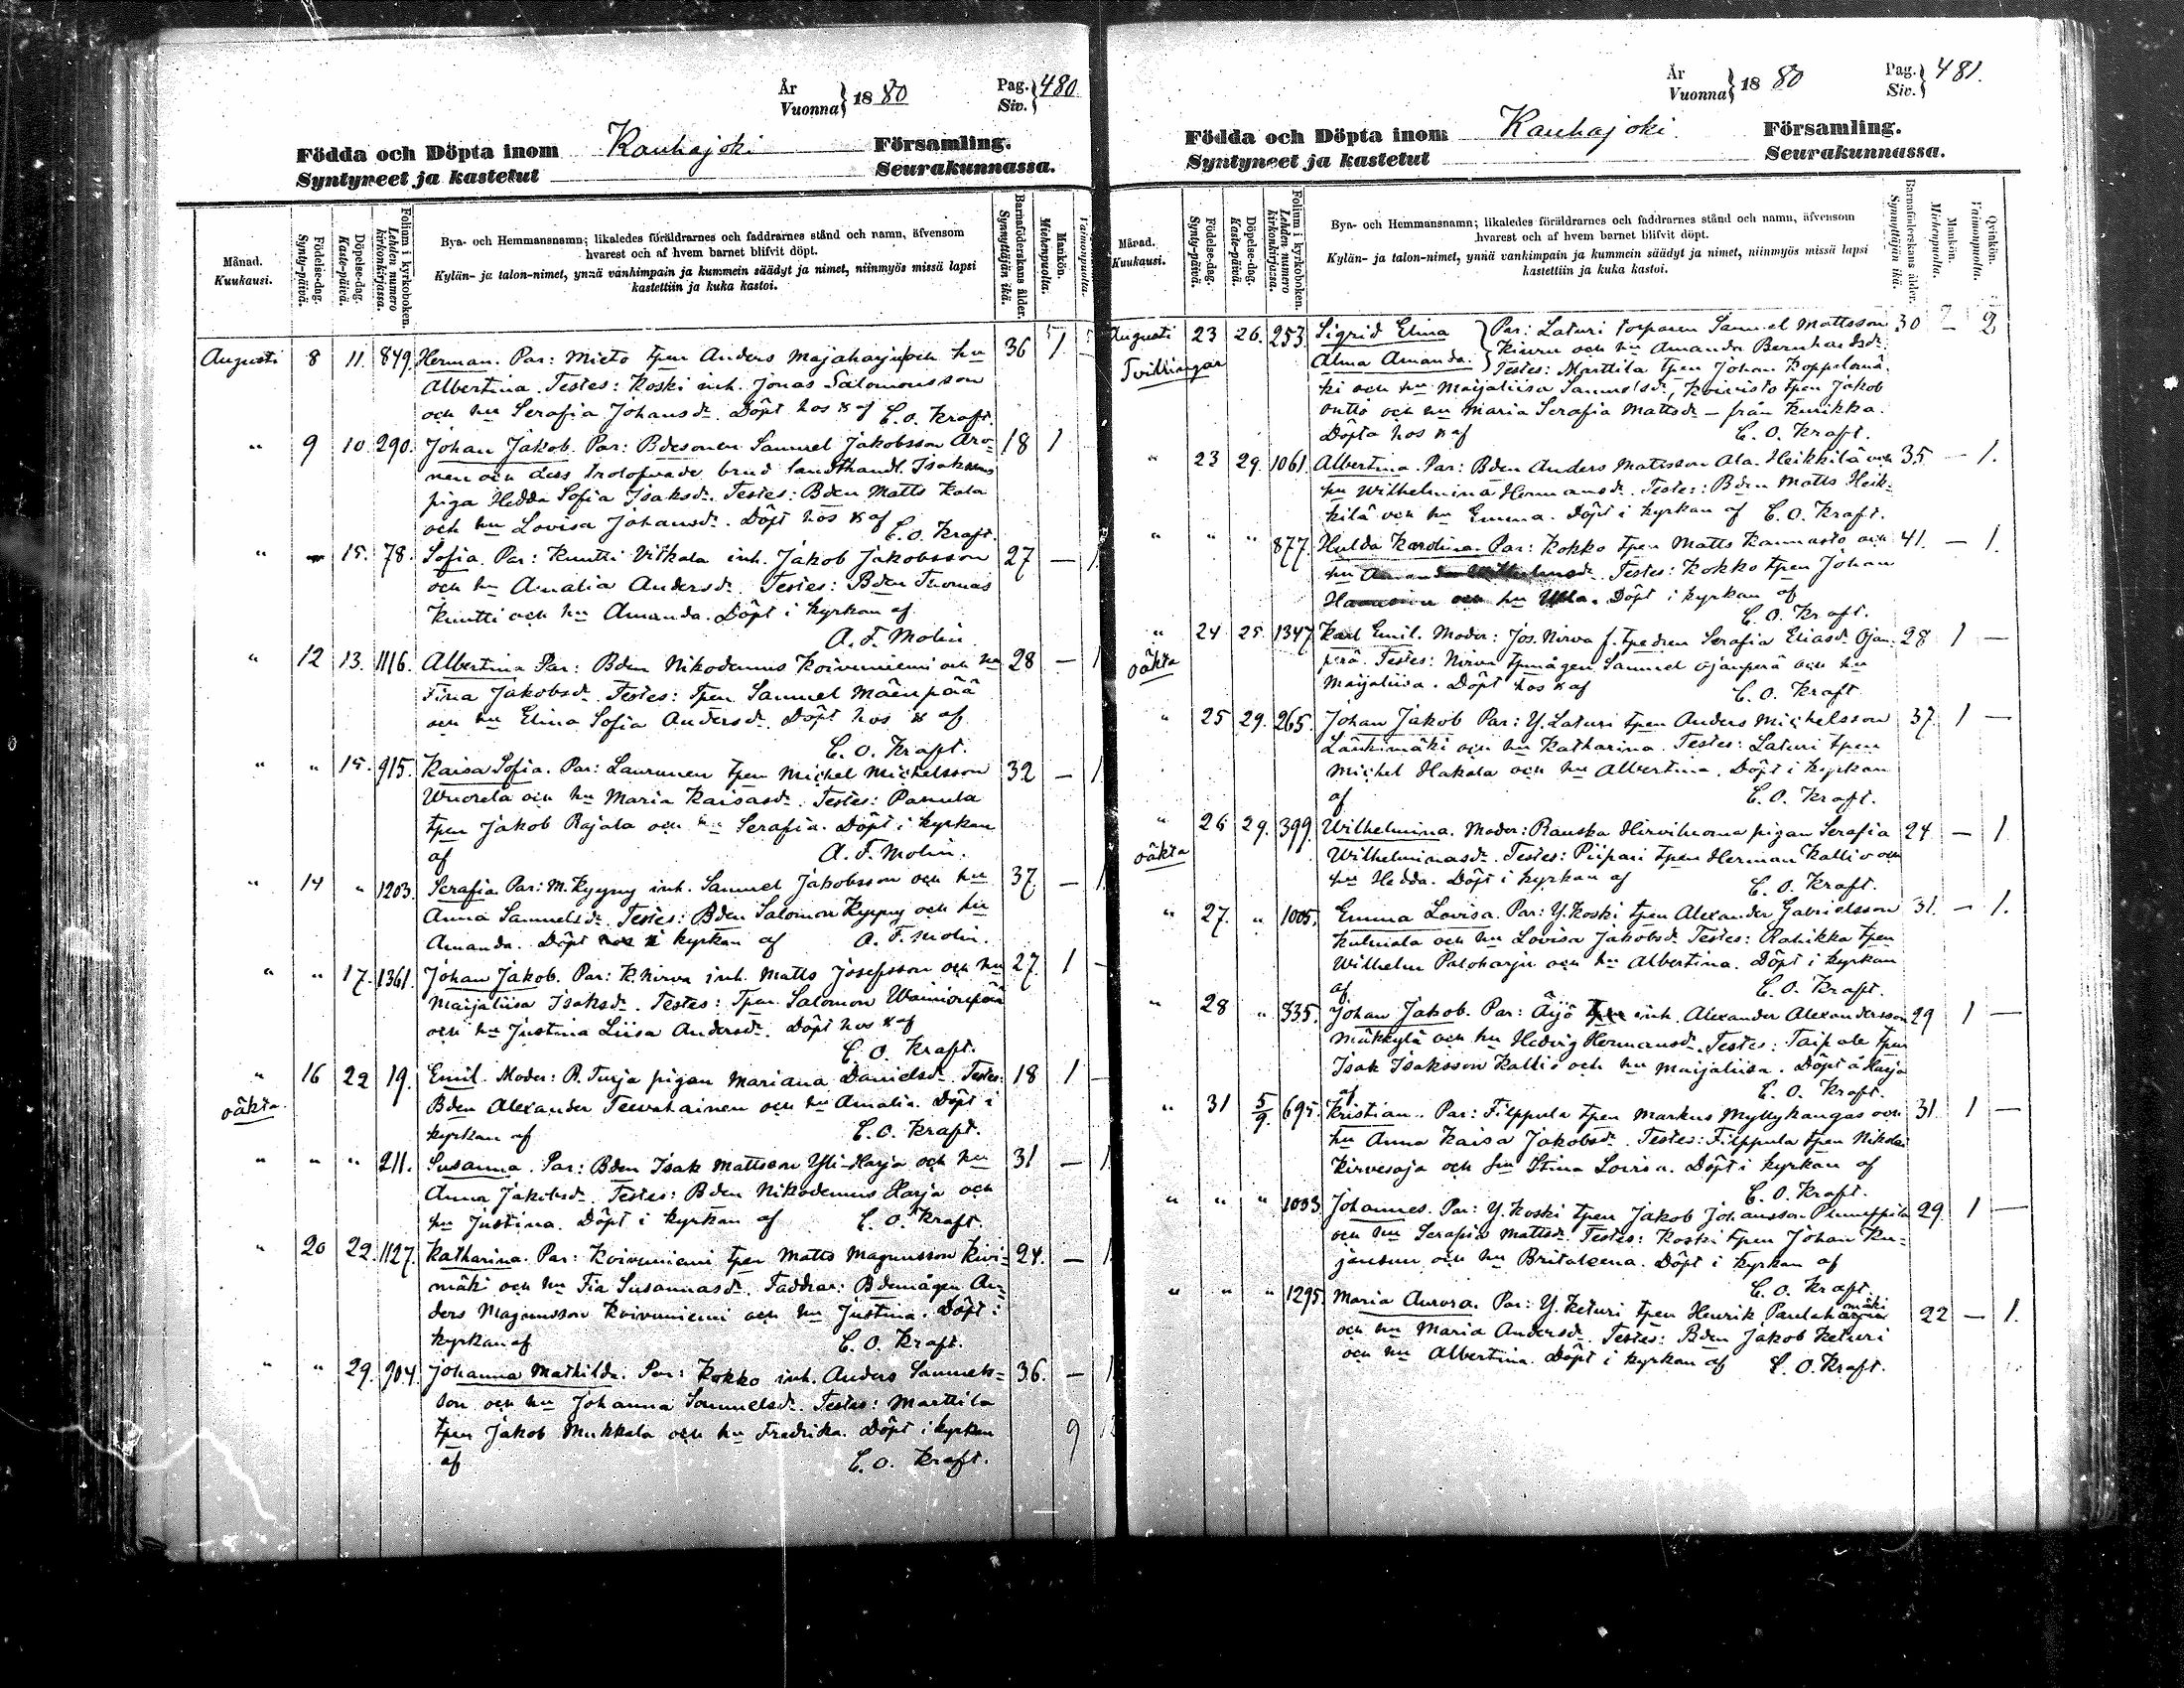 År
Vuonna } 1880
Pag.
Siv. } 480
Födda och Döpta inom Kauhajoki Församling.
Syntyneet ja kastetut Seurakunnassa.
Månad.
Kuukausi.
Födelse-dag.
Synty-päivä.
Döpelse-dag.
Kaste-päivä.
Folium i kyrkoboken.
Lehden numero kirkonkirjassa.
Bya- och Hemmansnamn; likaledes föräldrarnes och faddrarnes stånd och namn, äfvensom
hvarest och af hvem barnet blifvit döpt.
Kylän- ja talon-nimet, ynnä vanhimpain ja kummein säädyt ja nimet, niinmyös missä lapsi
kastettiin ja kuka kastoi.
Barnaföderskans ålder.
Synnyttäjän ikä.
Mankön.
Miehenpuolta.
Vaimonpuolta.
Augusti 8 11. 849. Herman. Par: Mieto tpen Anders Majaharju och hu 36 1
Albertina. Testes: Koski inh. Jonas Salomonsson
och hu Serafia Johansdr. Döpt hos af C. O. Kraft.
" 9 10 290. Johan Jakob. Par: Bdesonen Samuel Jakobsson Aro- 18 1
nen och dess trolofvade brud landthandl. Isaksons
piga Hedda Sofia Isaksdr. Testes: Bden Matts Kola
och hu Lovisa Johansdr. Döpt hos af C. O. Kraft.
" 15. 78. Sofia. Par: Knutti Vitkala inh. Jakob Jakobsson 27 — 1
och hu Amalia Andersdr. Testes: Bden Thomas
Knutti och hu Amanda. Döpt i kyrkan af
A. F. Molin
" 12 13. 1116. Albertina Par: Bden Nikodemus Koivuniemi och hu 28 — 1
Fina Jakobsdr. Testes: Tpen Samuel Mäenpää
och hu Elina Sofia Andersdr. Döpt hos af
C. O. Kraft.
" " 15. 915. Kaisa Sofia. Par: Laurunen tpen Michel Michelsson 32 — 1
Wuorela och hu Maria Kaisasdr. Testes: Panula
tpen Jakob Rajala och hu Serafia. Döpt i kyrkan
af A. F. Molin.
" 14 " 1203. Serafia Par: M. Kyyny inh. Samuel Jakobsson och hu 37. — 1
Anna Samuelsdr. Testes: Bden Salomon Kyyny och hu
Amanda. Döpt i kyrkan af A. F. Molin.
" " 17. 1361. Johan Jakob. Par: K. Nirva inh. Matts Josefsson och hu 27. 1 —
Maijaliisa Isaksdr. Testes: Tpen Salomon Wainionpää
och hu Justina Liisa Andersdr. Döpt hos af
C. O. Kraft.
" 16 22 19. Emil. Moder: P. Turja pigan Mariana Danielsdr. Testes: 18 1 —
oäkta. Bden Alexander Teevahainen och hu Amalia. Döpt i
kyrkan af C. O. Kraft.
" " " 211. Susanna. Par: Bden Isak Mattsson Yli-Harja och hu 31 — 1
Anna Jakobsdr. Testes: Bden Nikodemus Harja och
hu Justina. Döpt i kyrkan af C. O. Kraft.
" 20 22. 1127. Katharina. Par: Koivuniemi tpen Matts Magnusson Kivi- 24. — 1
mäki och hu Fia Susannasdr. Faddrar: Bdemågen An-
ders Magnusson Koivuniemi och hu Justina. Döpt i
kyrkan af C. O. Kraft.
" " 29. 904. Johanna Mathilda. Par: Kokko inh. Anders Samuels- 36. — 1
son och hu Johanna Samuelsdr. Testes: Marttila
tpen Jakob Mukkala och hu Fredrika. Döpt i kyrkan 9
af C. O. Kraft.
År
Vuonna } 1880
Pag.
Siv. } 481.
Födda och Döpta inom Kauhajoki. Församling.
Syntyneet ja kastetut Seurakunnassa.
Månad.
Kuukausi.
Födelse-dag.
Synty-päivä.
Döpelse-dag.
Kaste-päivä.
Folium i kyrkoboken.
Lehden numero kirkonkirjassa.
Bya- och Hemmansnamn; likaledes föräldrarnes och faddrarnes stånd och namn, äfvensom
hvarest och af hvem barnet blifvit döpt.
Kylän- ja talon-nimet, ynnä vanhimpain ja kummein säädyt ja nimet, niinmyös missä lapsi
kastettiin ja kuka kastoi.
Barnaföderskans ålder.
Synnyttäjän ikä.
Mankön.
Miehenpuolta.
Qvinkön.
Vaimonpuolta.
Augusti 23 26. 253 Sigrid Elina } Par: Laturi torparen Samuel Mattsson 30 — 2
Tvillingar Alma Amanda. Kiuru och hu Amanda Bernhardsdr.
Testes: Marttila tpen Johan Koppelomä-
ki och hu Maijaliisa Samuelsdr, Koivisto tpen Jakob
Antto och hu Maria Serafia Mattsdr — från Kurikka.
Döpta hos af C. O. Kraft.
" 23 29. 1061. Albertina. Par: Bden Anders Mattsson Ala-Heikkilä och 35 — 1.
hu Wilhelmina Hermansdr. Testes: Bden Matts Heik-
kilä och hu Emma. Döpt i kyrkan af C. O. Kraft.
" " " 877. Hulda Karolina. Par: Kokko tpen Matts Kannasto och 41. — 1.
hu Testes: Kokko tpen Johan
och hu Ulla. Döpt i kyrkan af
C. O. Kraft.
" 24 25. 1347. Karl Emil. Moder: Jos. Nirva f. tpedren Serafia Eliasdr. Ojan- 28 1 —
oäkta perä. Testes: Nirva tpmågen Samuel Ojanperä och hu
Maijaliisa. Döpt hos af C. O. Kraft.
" 25 29. 265. Johan Jakob Par: Y. Laturi tpen Anders Michelsson 37. 1 —
Länkimäki och hu Katharina. Testes: Laturi tpen
Michel Hakala och hu Albertina. Döpt i kyrkan
af C. O. Kraft.
" 26 29. 399. Wilhelmina. Moder: Rauska Hirvihuoma pigan Serafia 24 — 1
oäkta Wilhelminasdr. Testes: Piipari tpen Herman Kallio och
hu Hedda. Döpt i kyrkan af C. O. Kraft.
" 27. " 1005. Emma Lovisa. Par: Y. Koski tpen Alexander Gabrielsson 31. — 1.
Kulmala och hu Lovisa Jakobsdr. Testes: Rahikka tpen
Wilhelm Paloharju och hu Albertina. Döpt i kyrkan
af C. O. Kraft.
" 28 " 335. Johan Jakob. Par: Äijö inh. Alexander Alexandersson 29 1 —
Mäkkylä och hu Hedvig Hermansdr. Testes: Taipale tpen
Isak Isaksson Kallio och hu Maijaliisa. Döpt å Harja
af C. O. Kraft.
" 31 5/9. 695. Kristian. Par: Filppula tpen Markus Myllykangas och 31. 1 —
hu Anna Kaisa Jakobsdr. Testes: Filppula tpen Nikolai
Kirvesoja och hu Stina Lovisa. Döpt i kyrkan af
C. O. Kraft.
" " " 1003. Johannes. Par: Y. Koski tpen Jakob Johansson 29. 1 —
och hu Serafia Mattsdr. Testes: Koski tpen Johan Ku-
jansuu och hu Britaleena. Döpt i kyrkan af
C. O. Kraft.
" " " 1295. Maria Aurora. Par: Y. Keturi tpen Henrik 22 — 1.
och hu Maria Andersdr. Testes: Bden Jakob Keturi
och hu Albertina. Döpt i kyrkan af C. O. Kraft.